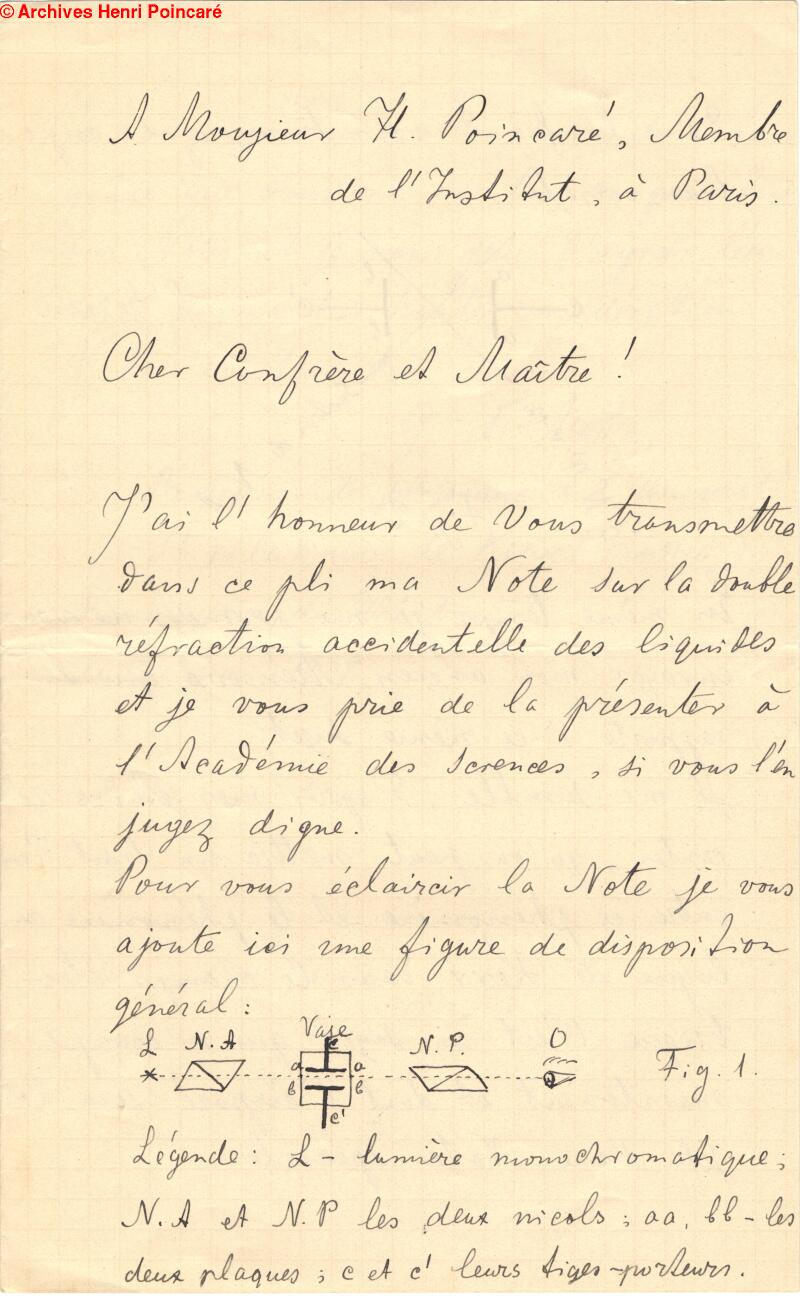 © Archives Henri Poincaré
A Monsieur H. Poincaré, Membre
de l'Institut, à Paris.
Cher Confrère et Maître!
J'ai l'honneur de Vous transmettre
dans ce pli ma Note sur la double
réfraction accidentelle des liquides
et je vous prie de la présenter à
l'Académie des Sciences, si vous l'en
jugez digne.
Pour vous éclaircir la Note je vous
ajoute ici une figure de disposition
général:
L N.A Vase c a a b b c' N.P. O Fig. 1.
Légende: L - lumière monochromatique;
N.A et N.P les deux nicols; aa, bb - les
deux plaques; c et c' leurs tiges-porteurs.